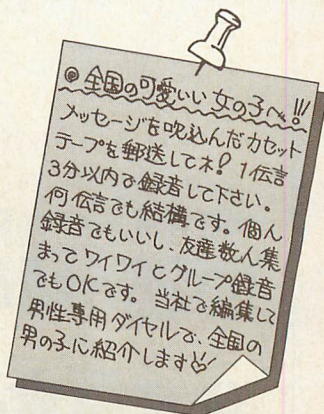 ◉全国の可愛いい女の子へ!!
メッセージを吹込んだカセット
テープを郵送してネ! 1伝言
3分以内で録音して下さい。
何伝言でも結構です。個人
録音でもいいし、友達数人集
まってワイワイとグループ録音
でもOKです。当社で編集して
男性専用ダイヤルで、全国の
男の子に紹介します